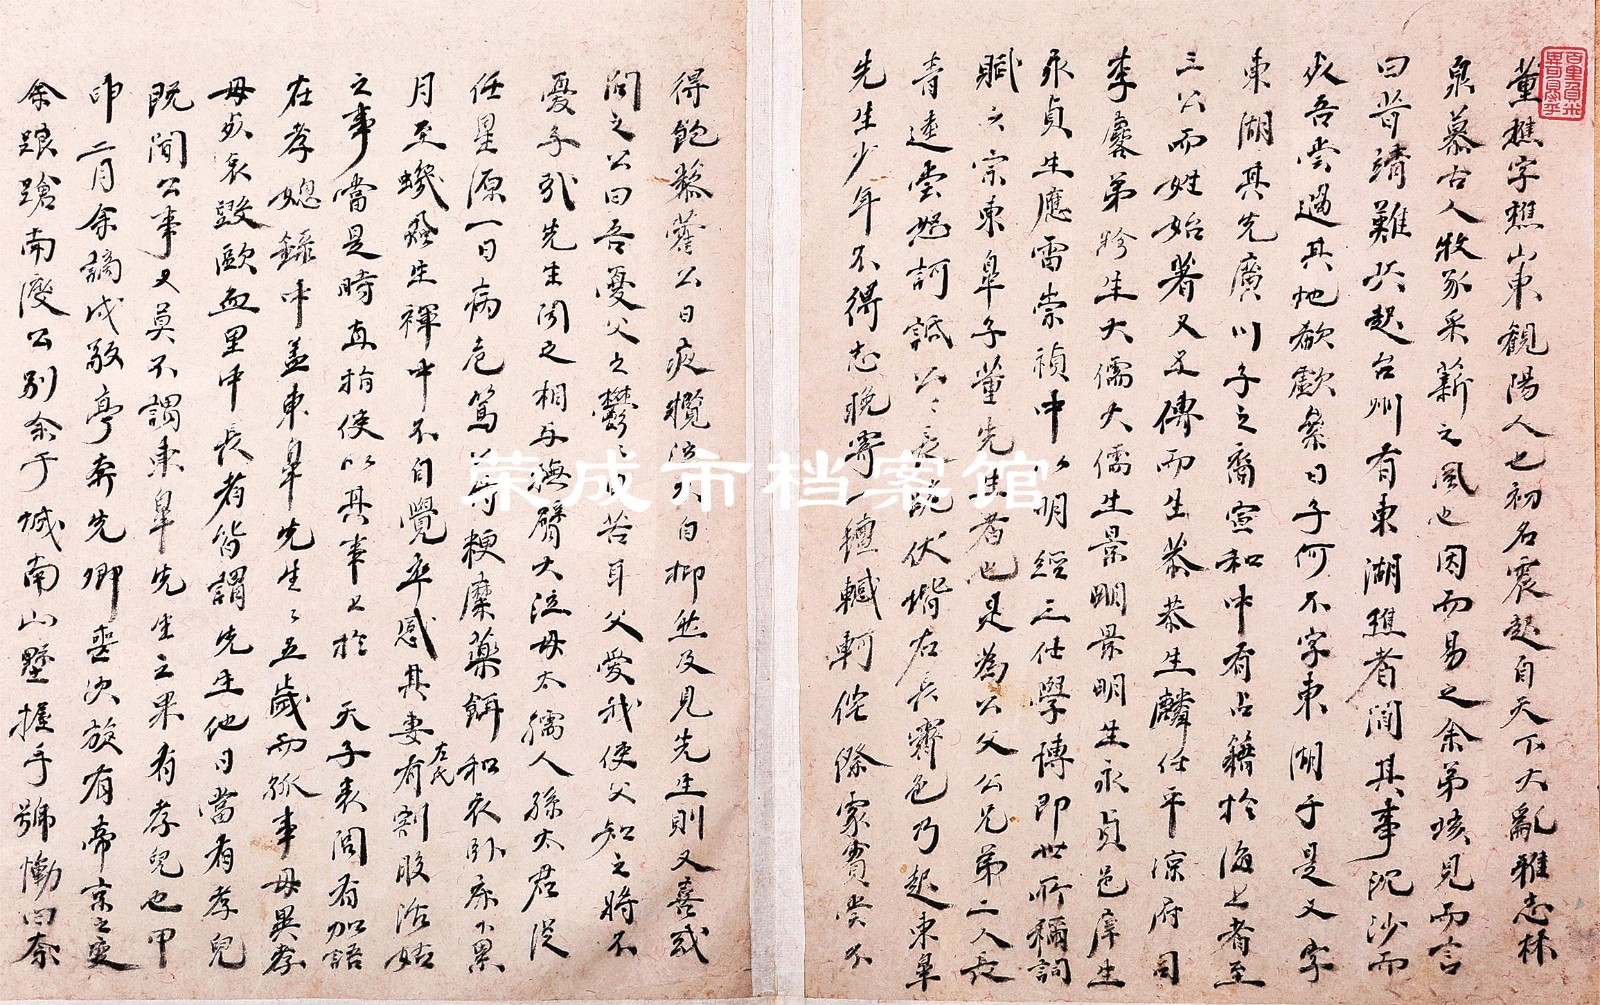 董樵字樵山東觀陽人也初名震起自天下大亂雅志林
泉慕古人牧豕采薪之風也因而易之余弟咳見而言
曰昔靖難兵起台州有東湖樵者聞其事沉沙而
死吾嘗過其地欷歔縈日子何不字東湖于是又字
東湖其先廣川子之裔宣和中有占籍於海上者至
三公而姓始著又五傳而生恭恭生麟任平涼府司
李麐弟弟生大儒大儒生景明景明生永貞邑庠生
永貞生應雷崇禎中以明經三任學博即世所稱詞
賦六宗東皋子董先生者也是為公父公兄弟二人長
青逵雲怒訶詆公公長跪伏堦右長霽色乃起東皋
先生少年不得志晚寄一氊轗軻侘傺家貧嘗不
得飽藜藿公日夜攬涕自抑然及見先生則又喜或
問之公曰吾憂父之鬱鬱自苦耳父愛我使父知之將不
憂乎我先生聞之相与撫臂大泣母太孺人孫太君從
任星源一日病危篤公哥粳糜藥餌和衣卧床下累
月至蟣虱生褌中不自覺卒感其妻左氏有割股活姑
之事當是時直指使以其事上於 天子表閭有加語
在孝媳錄中盖東皋先生先生五歲而孤事母異孝
母歿哀毀歐血里中長者皆謂先生他日當有孝兒
既聞公事又莫不謂東皋先生之果有孝兒也甲
申二月余謫戍敬亭奔先卿喪次旋有帝京之变
余踉蹌南渡公別余于城南山墅握手號慟曰奈
荣成市档案馆